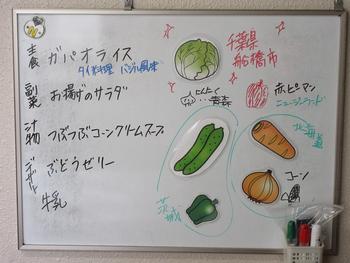 主食 ガパオライス
タイ料理 バジル風味
副菜 お揚げのサラダ
汁物 つぶつぶコーンクリームスープ
デザート ぶどうゼリー
牛乳
千葉県
船橋市
にんにく
…青森
赤ピーマン
ニュージーランド
北海道
コーン
茨城